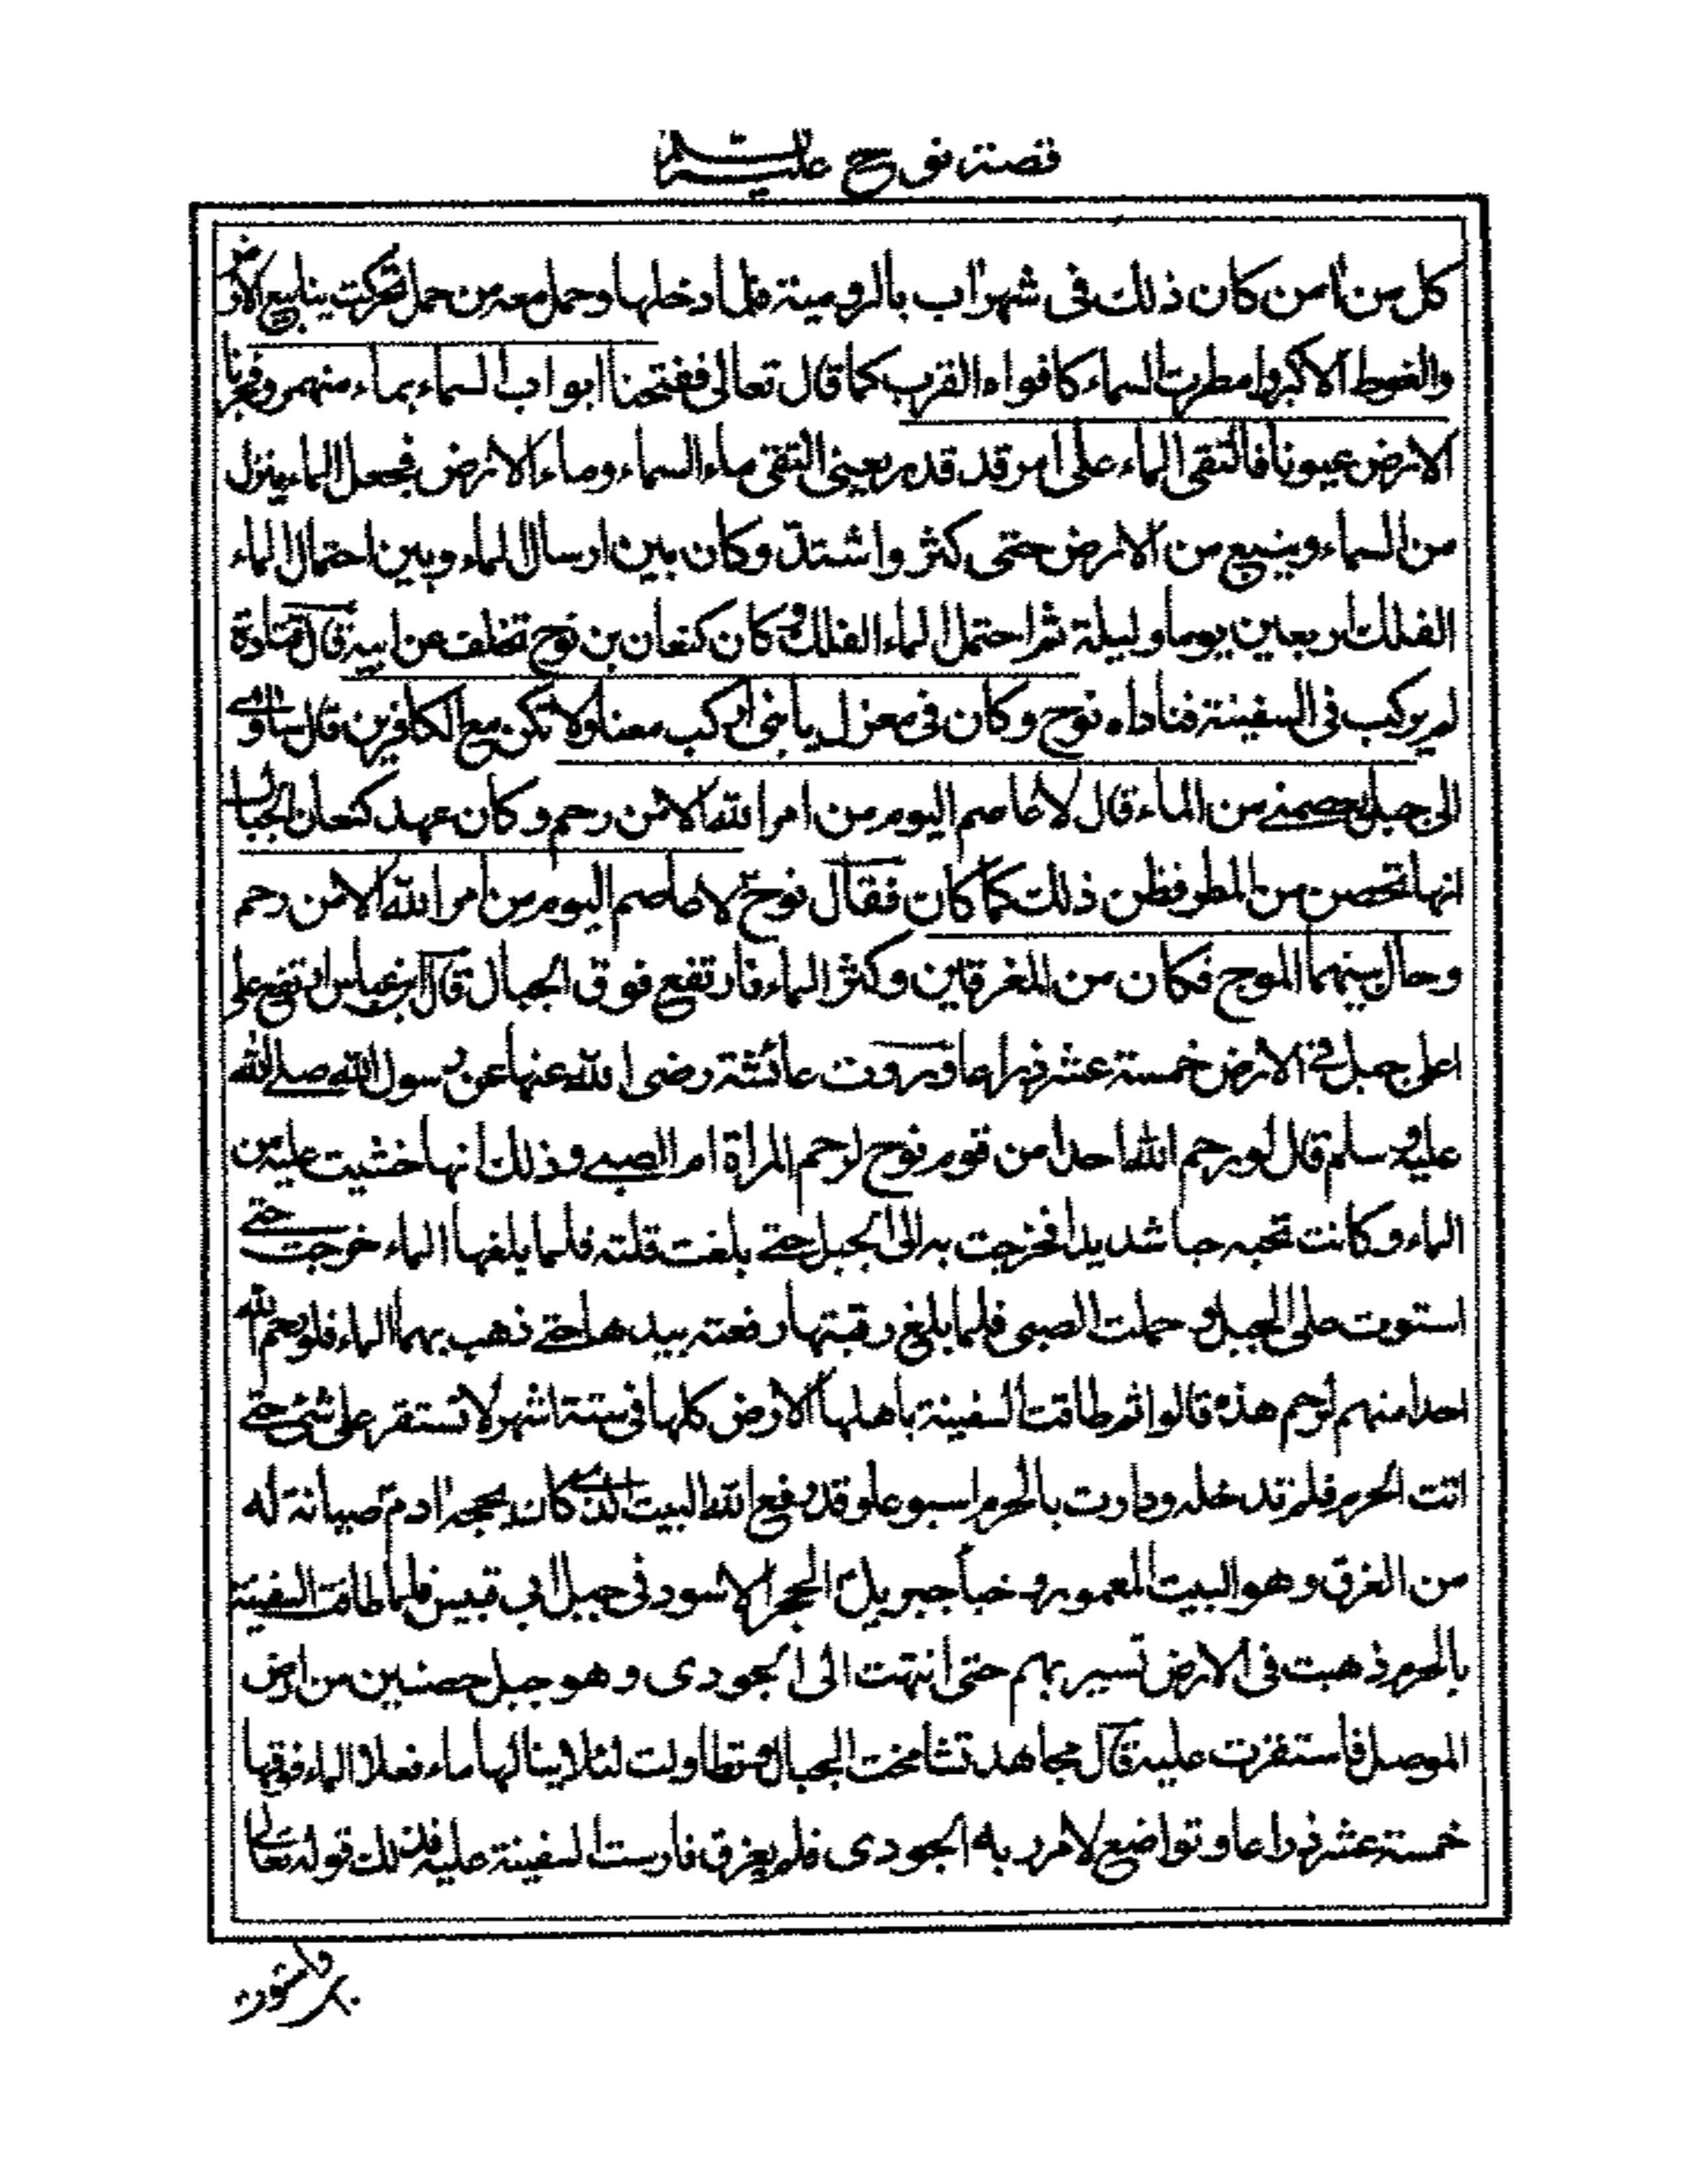 قصة نوح عليه السلام
كل من أمن كان ذلك فى شهر اب بالرومية فلما دخلها وحمل معه من حمل تحركت ينابيع الارض
والغوط الاكبر وامطرت السماء كافواه القرب كما قال تعالى ففتحنا ابواب السماء بماء منهمر وفجرنا
الارض عيونا فالتقى الماء على امر قد قدر يعنى التقى ماء السماء وماء الارض فجعل الماء ينزل
من السماء وينبع من الارض حتى كثر واشتد وكان بين ارسال الماء وبين احتمال الماء
الفلك اربعين يوما وليلة ثم احتمل الماء الفلك وكان كنعان بن نوح تخلف عن ابيه قال قتادة
لم يركب فى السفينة فناداه نوح وكان فى معزل يا بنى اركب معنا ولا تكن مع الكافرين قال ساوى
الى جبل يعصمنى من الماء قال لا عاصم اليوم من امر الله الا من رحم وكان عهد كنعان الجبال
انها تحصن من المطر فظن ذلك كما كان فقال نوح لا عاصم اليوم من أمر الله الا من رحم
وحال بينهما الموج فكان من المغرقين وكثر الماء فارتفع فوق الجبال قال ابن عباس ارتفع على
اعلى جبل فى الارض خمسة عشر ذراعا وروت عائشة رضى الله عنها عن رسول الله صلى الله
عليه وسلم قال لو يرحم الله احدا من قوم نوح لرحم المراة ام الصبى وذلك انها خشيت عليه من
الماء وكانت تحبه حبا شديدا فخرجت به الى الجبل حتى بلغت قلته فلما بلغها الماء خرجت حتى
استوت على الجبل وحملت الصبى فلما بلغ رقبتها رفعته بيدها حتى ذهب بهما الماء فلو يرحم الله
احدا منهم لرحم هذه قالوا ثم طافت السفينة باهلها الارض كلها فى ستة اشهر لا تستقر على شئ حتى
اتت الحرم فلم تدخله ودارت بالحرم اسبوعا وقد رفع الله البيت الذى كان يحجه ادم صيانة له
من الغرق وهو البيت المعمور وخبأ جبريل الحجر الاسود فى جبل ابى قبيس فلما طافت السفينة
بالحرم ذهبت فى الارض تسير بهم حتى انتهت الى الجودى وهو جبل حصنين من ارض
الموصل فاستقرت عليه قال مجاهد تشامخت الجبال وتطاولت لئلا ينالها ماء فعلا الماء فوقها
خمسة عشر ذراعا وتواضع لامر ربه الجودى فلم يغرق فارست السفينة عليه فذلك قوله تعالى
واستوت